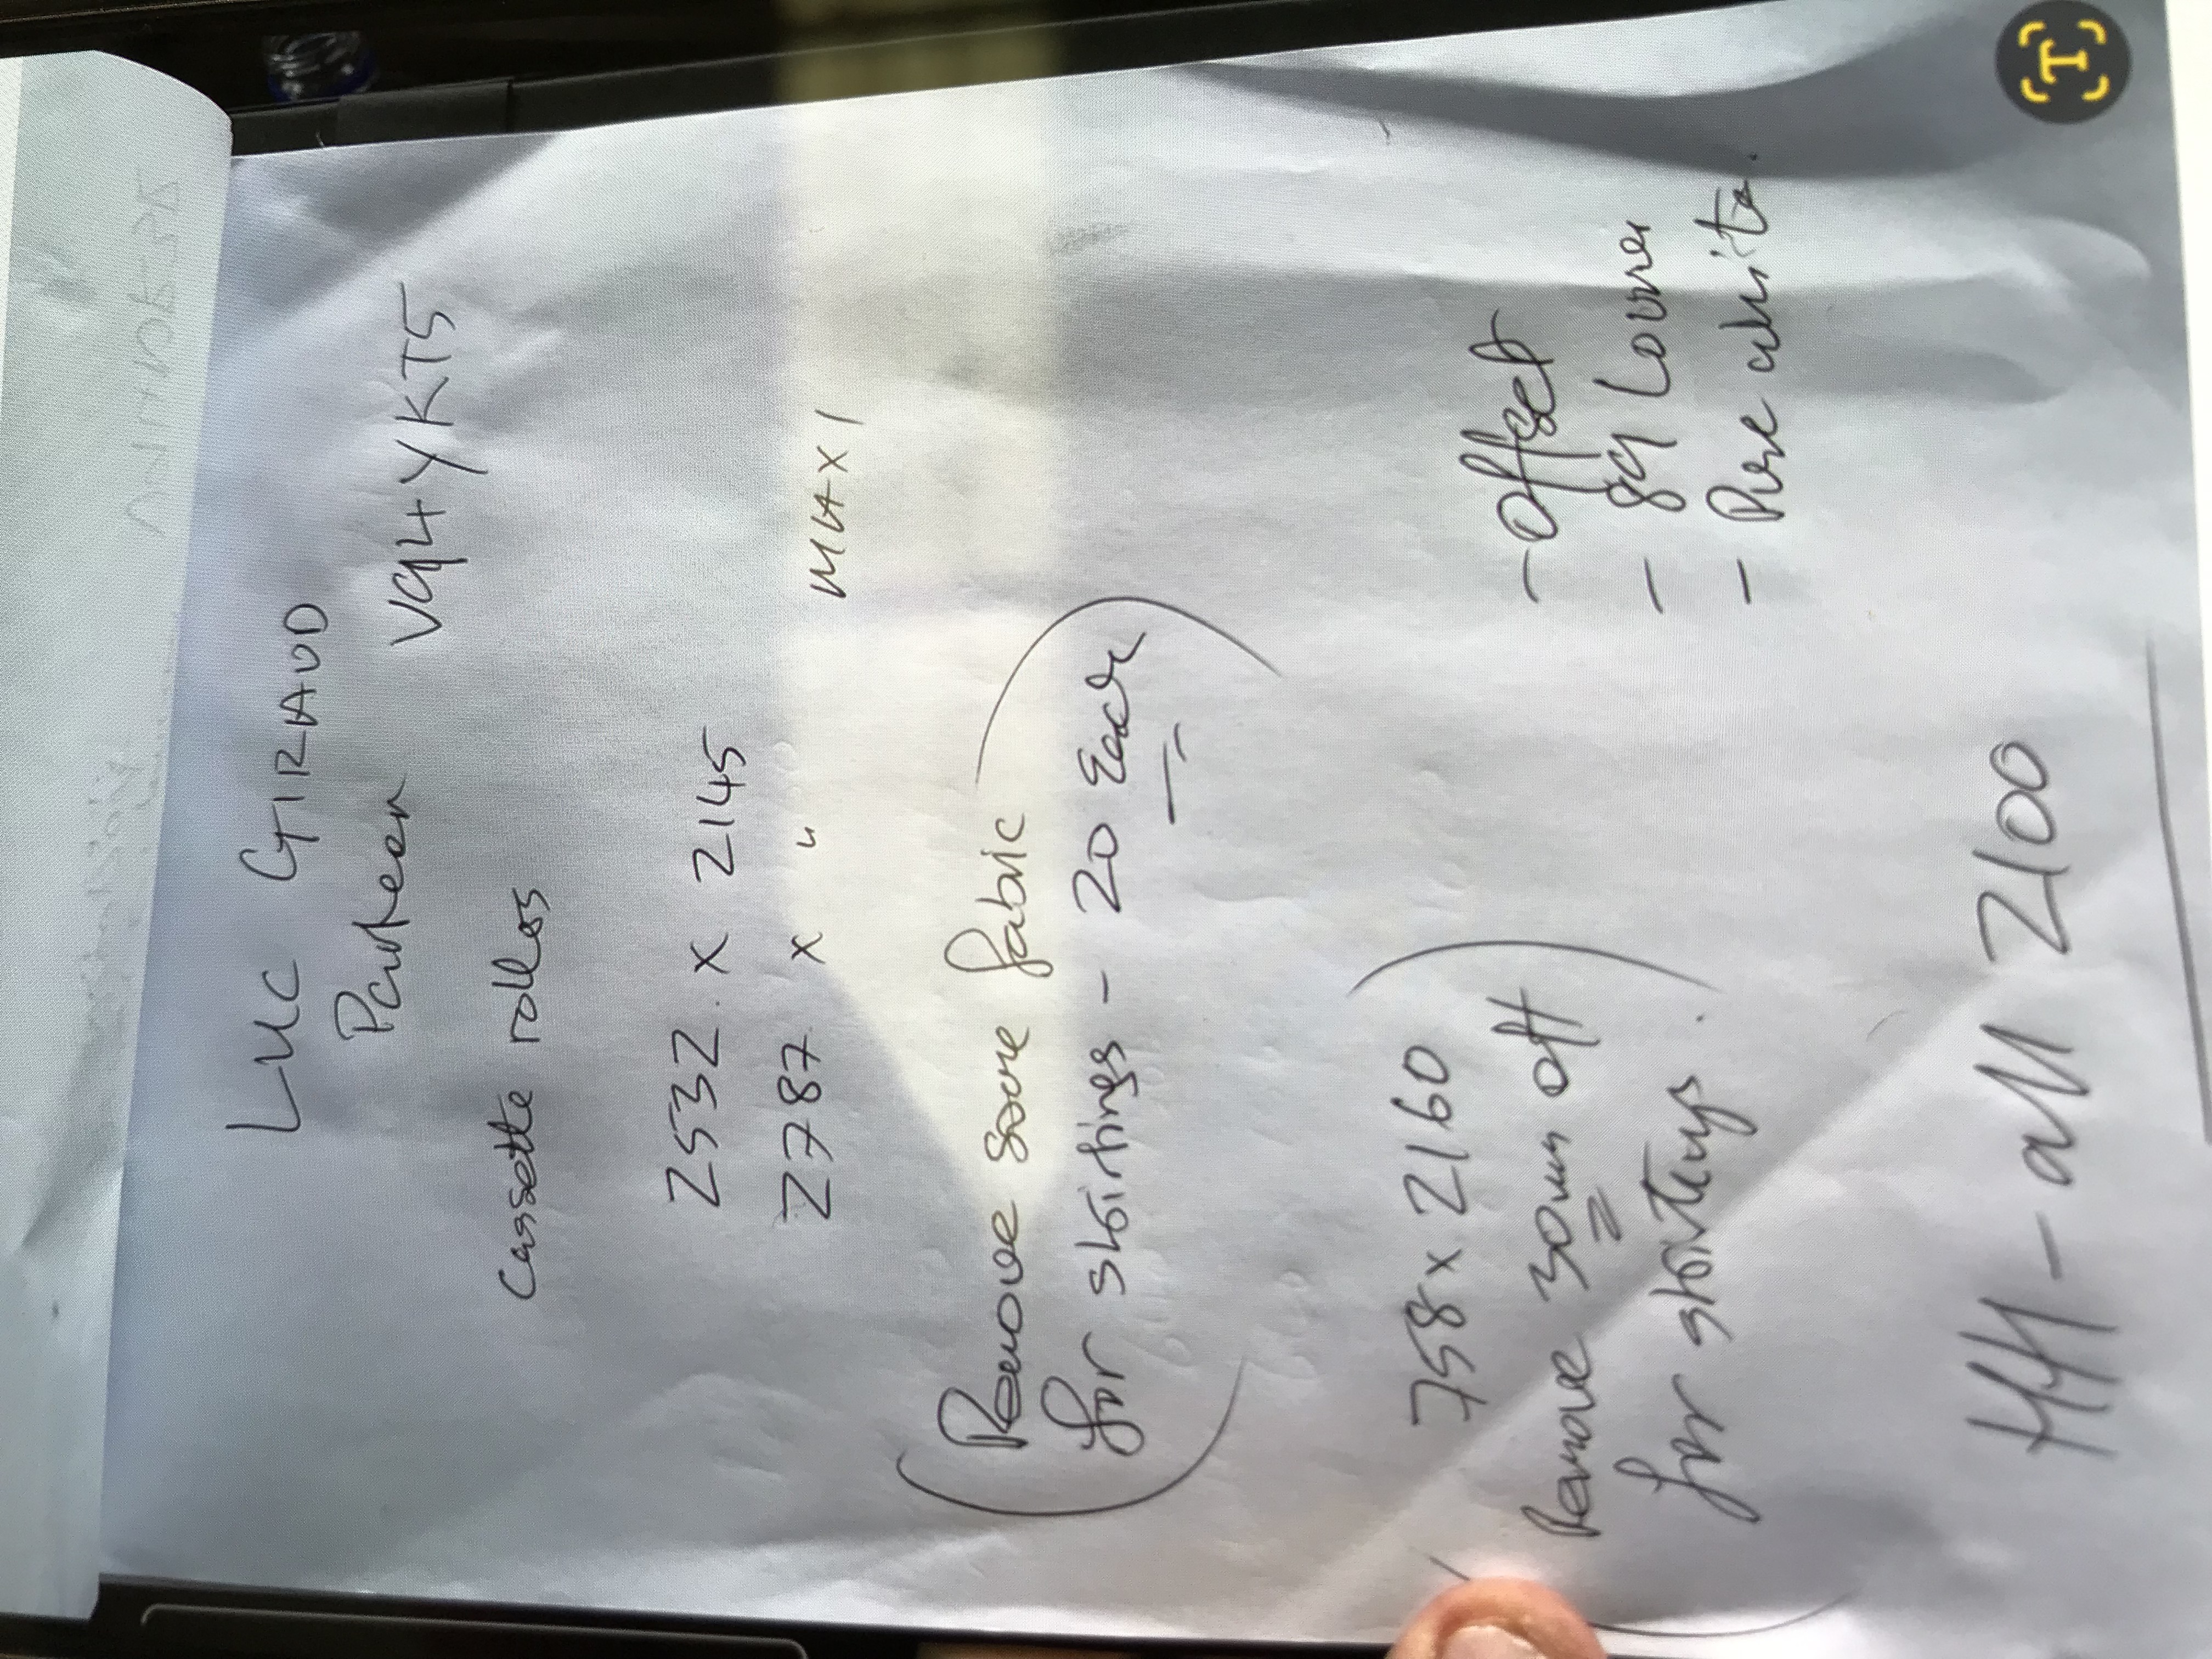 LUC GIRAUD
VQ4YKT5
Cassette rolles
2532 x 2145
2787 x "
M4 x 1
(Remove some fabric
for slotings - 20 Each)
758 x 2160
(Remove 30mm off
for slotings)
- Offset
- 89 Louvre
- Pure white.
HH - all 2100